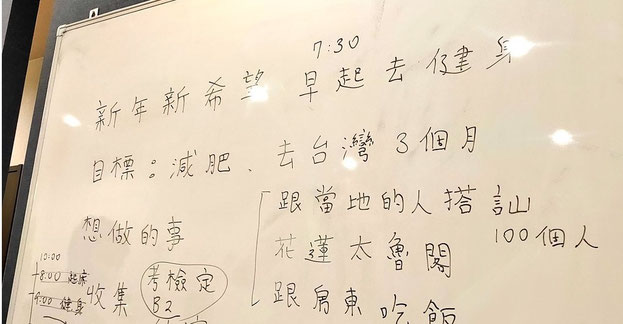 7:30
新年新希望 早起去健身
目標：減肥、去台灣3個月
想做的事
跟當地的人搭訕
100個人
花蓮太魯閣
跟房東吃飯
10:00
8:00 起床
9:00 健身
收集
考檢定
B2